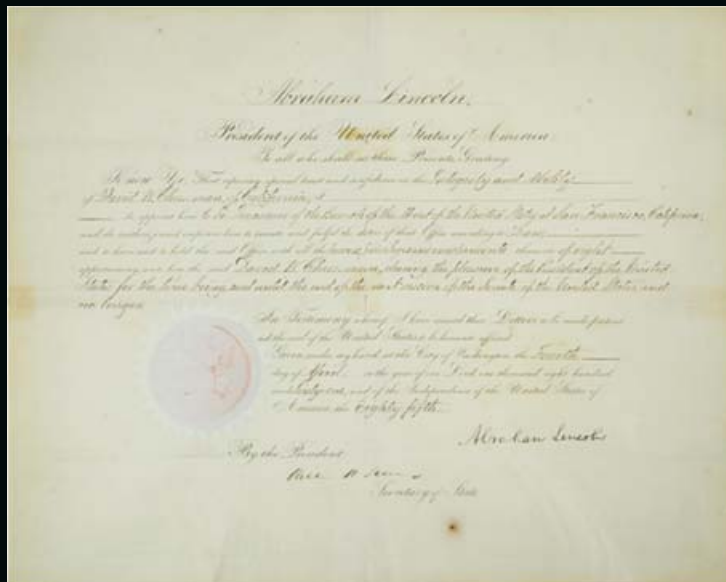 Abraham Lincoln,
President of the United States of America.
To all who shall see these Presents, Greeting:
Know Ye, That reposing special trust and confidence in the Integrity and Ability
of David W. Cheesman, of California, I
do appoint him to be Treasurer of the Branch of the Mint of the United States, at San Francisco, California,
and do authorize and empower him to execute and fulfil the duties of that Office according to Law;
and to have and to hold the said Office, with all the emoluments thereunto of right
appertaining unto him the said David W. Cheesman, during the pleasure of the President of the United
States for the time being, and until the end of the next session of the Senate of the United States, and
no longer.
In Testimony whereof, I have caused these Letters to be made patent
and the seal of the United States to be hereunto affixed.
Given under my hand at the City of Washington, the Fourth
day of April in the year of our Lord one thousand eight hundred
and Sixty one, and of the Independence of the United States of
America the Eighty fifth.
Abraham Lincoln
By the President
Secretary of State